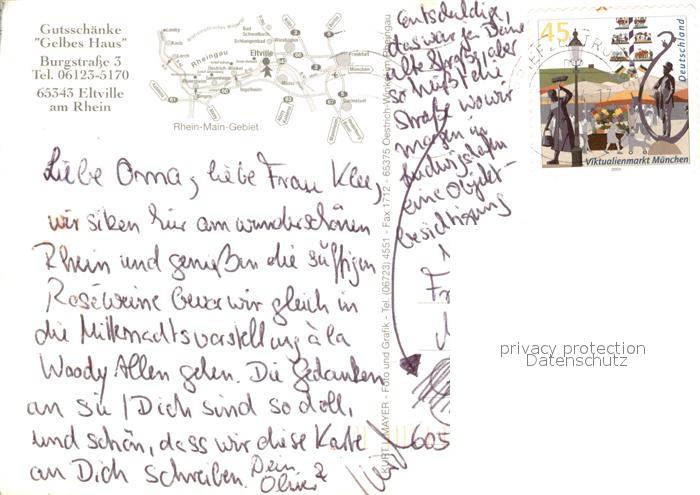 Gutsschänke
"Gelbes Haus"
Burgstraße 3
Tel. 06123-5170
65343 Eltville
am Rhein
Rheingau
Eltville
Wiesbaden
Frankfurt
München
Darmstadt
Ingelheim
Bad Schwalbach
Schlangenbad
Rhein-Main-Gebiet
KURT U. MAYER - Foto und Grafik - Tel. (06723) 4551 - Fax 1712 - 65375 Oestrich-Winkel im Rheingau
Entschuldige,
das war ja Deine
alte Straße, aber
so heißt die
Straße wo wir
morgen in
Ludwigshafen
eine Objekt-
besichtigung
45
Deutschland
Viktualienmarkt München
2003
Liebe Omma, liebe Frau Klee,
wir sitzen hier am wunderschönen
Rhein und genießen die süffigen
Roséweine bevor wir gleich in
die Mitternachtsvorstellung à la
Woody Allen gehen. Die Gedanken
an sie / Dich sind so doll,
und schön, dass wir diese Karte
an Dich schreiben. Dein
Oliver
Fr
605
privacy protection
Datenschutz